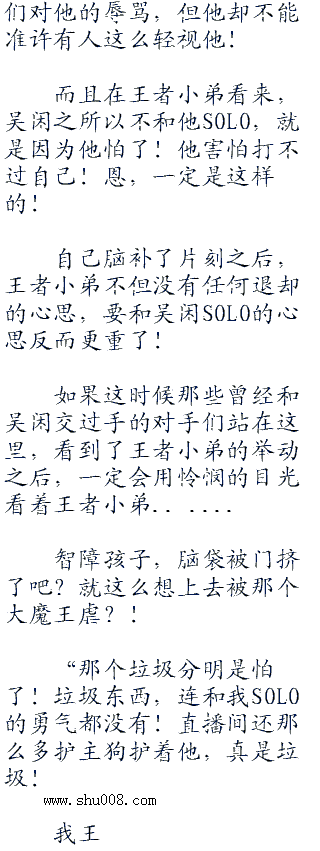 们对他的辱骂，但他却不能
准许有人这么轻视他！
而且在王者小弟看来，
吴闲之所以不和他SOLO，就
是因为他怕了！他害怕打不
过自己！恩，一定是这样
的！
自己脑补了片刻之后，
王者小弟不但没有任何退却
的心思，要和吴闲SOLO的心
思反而更重了！
如果这时候那些曾经和
吴闲交过手的对手们站在这
里，看到了王者小弟的举动
之后，一定会用怜悯的目光
看着王者小弟．．．．．．
智障孩子，脑袋被门挤
了吧？就这么想上去被那个
大魔王虐？！
“那个垃圾分明是怕
了！垃圾东西，连和我SOLO
的勇气都没有！直播间还那
么多护主狗护着他，真是垃
圾！
www.shu008.com
我王